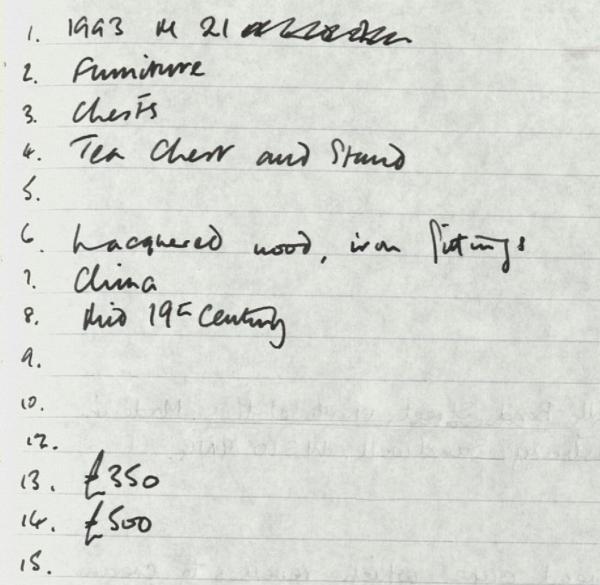 1. 1993 M 21
2. Furniture
3. Chests
4. Tea Chest and Stand
5.
6. Lacquered wood, iron fittings
7. China
8. Mid 19th Century
9.
10.
12.
13. £350
14. £500
15.